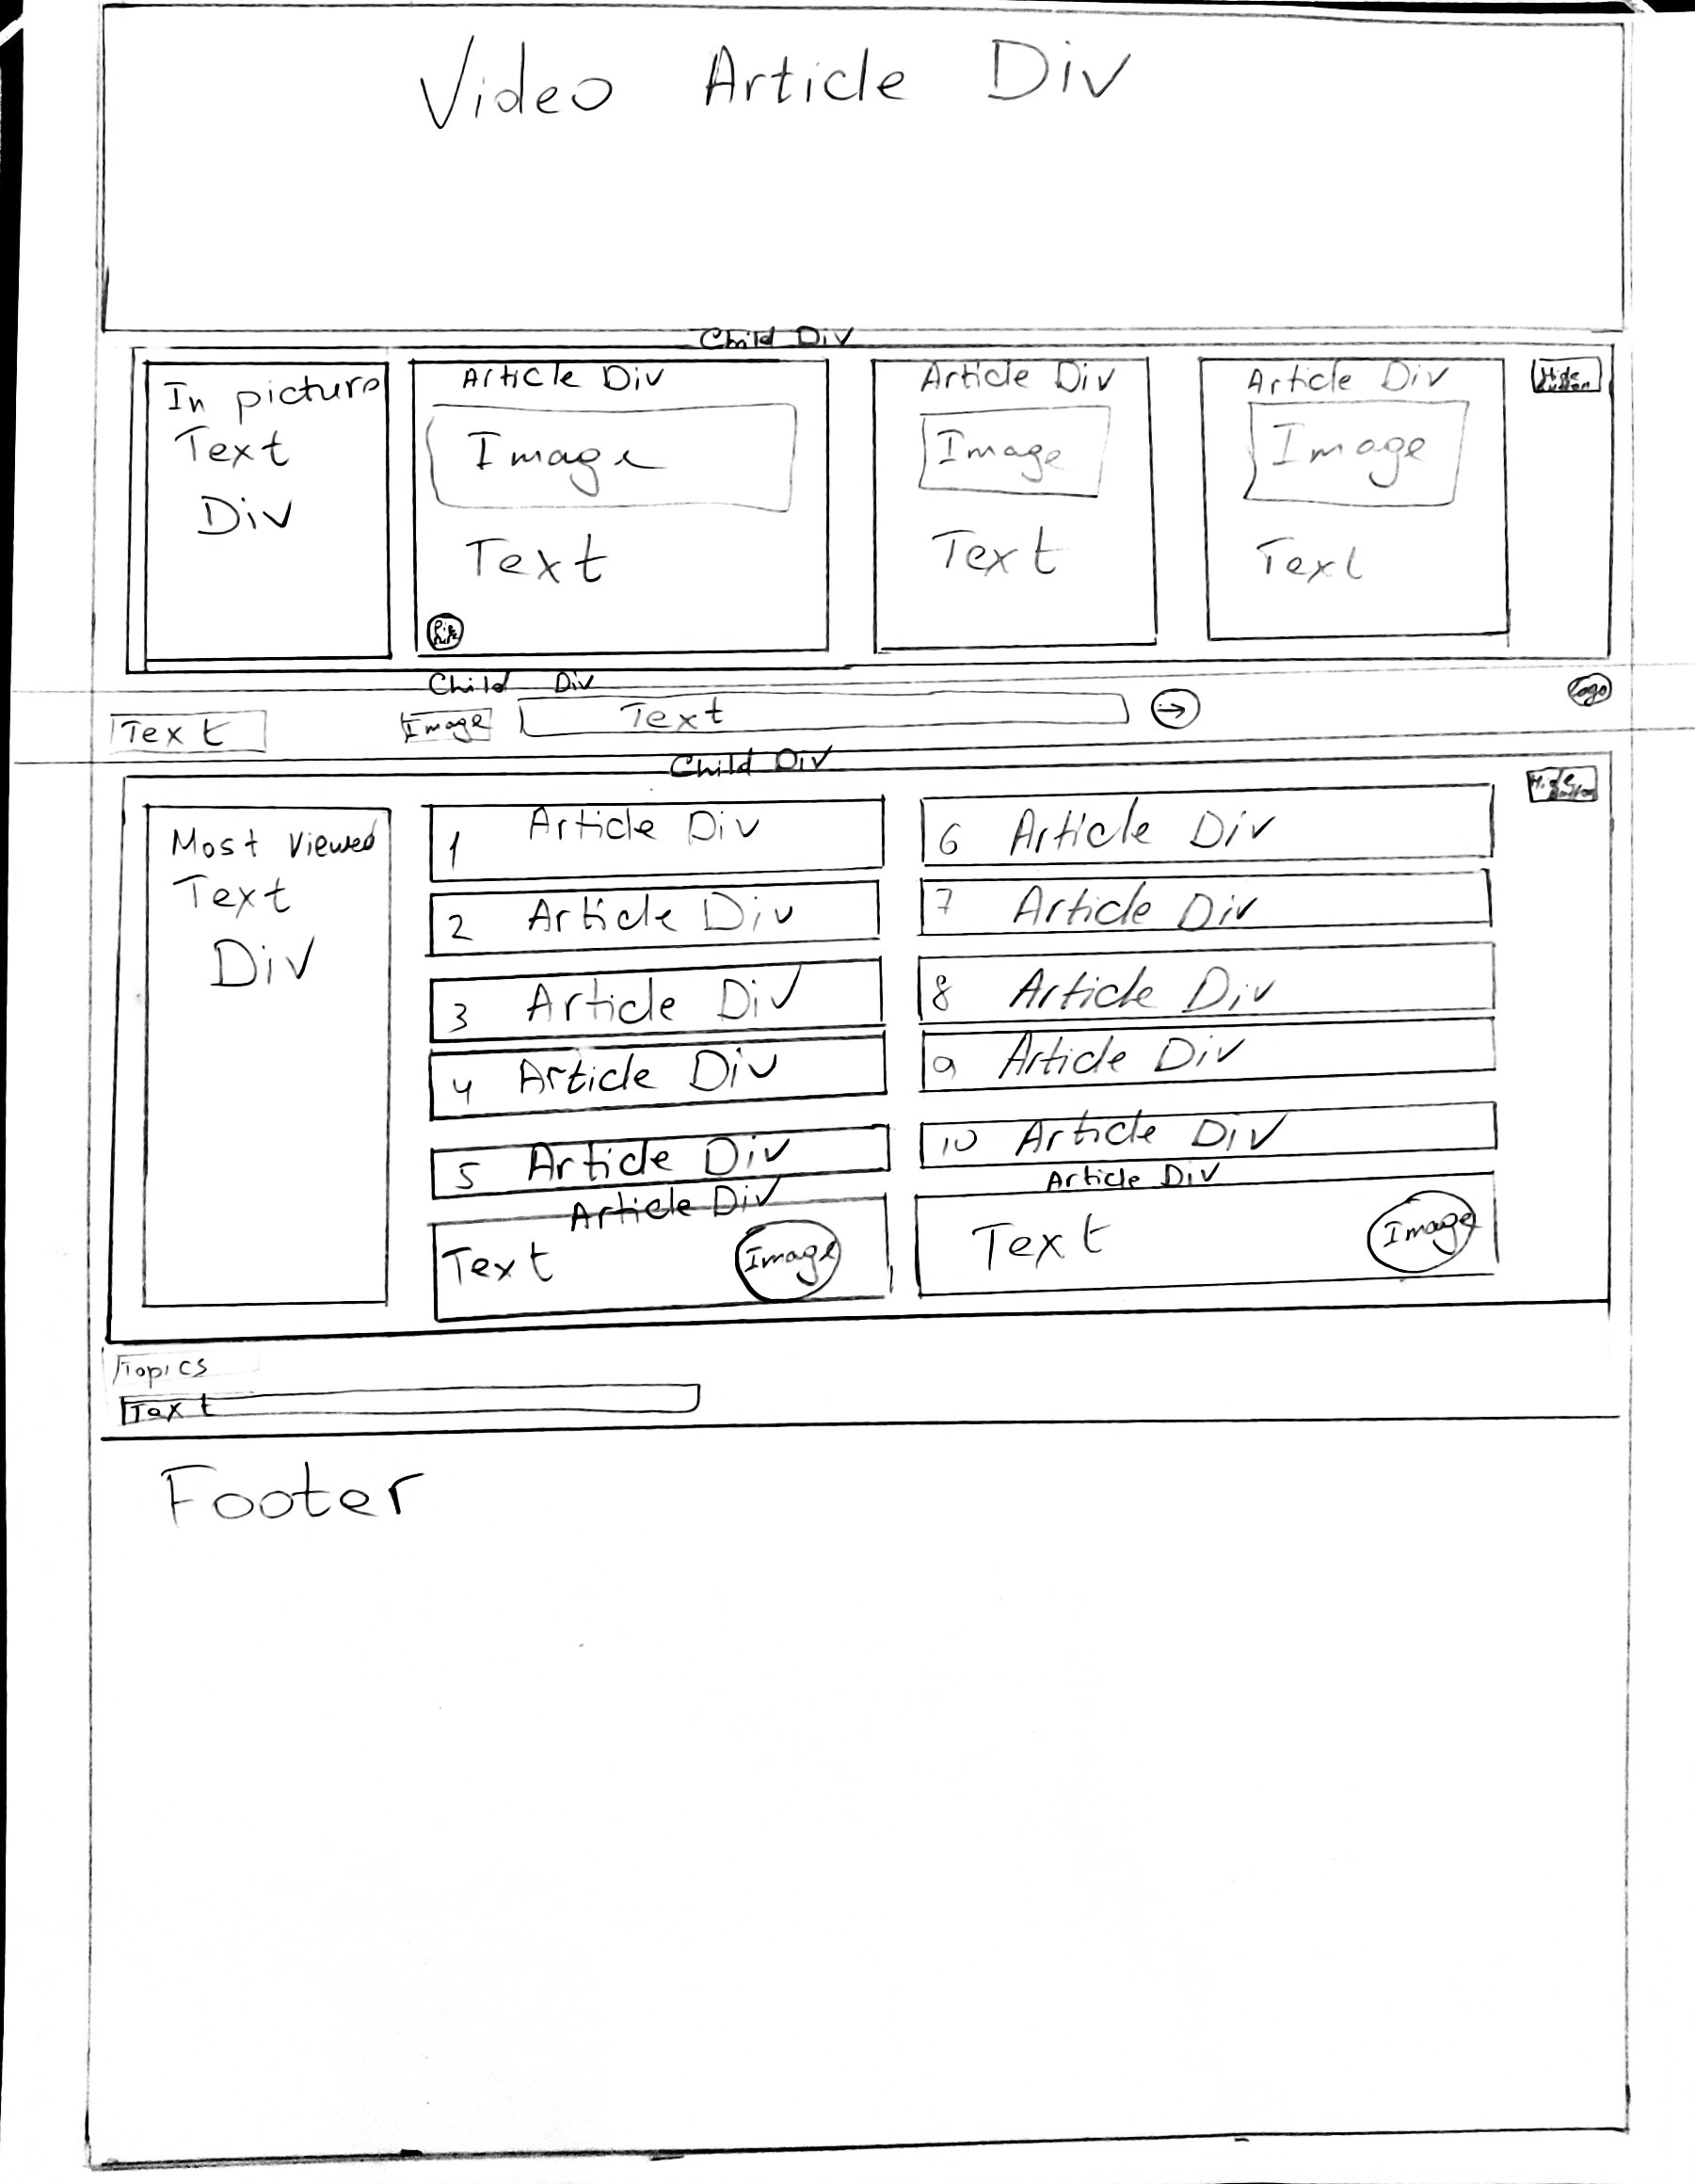 Video Article Div
Child Div
In picture
Text
Div
Article Div
Image
Text
Article Div
Image
Text
Article Div
Image
Text
Hide
Child Div
Text
Image
Text
Logo
Child Div
Most Viewed
Text
Div
1 Article Div
2 Article Div
3 Article Div
4 Article Div
5 Article Div
Article Div
Text
Image
6 Article Div
7 Article Div
8 Article Div
9 Article Div
10 Article Div
Article Div
Text
Image
Topics
Text
Footer